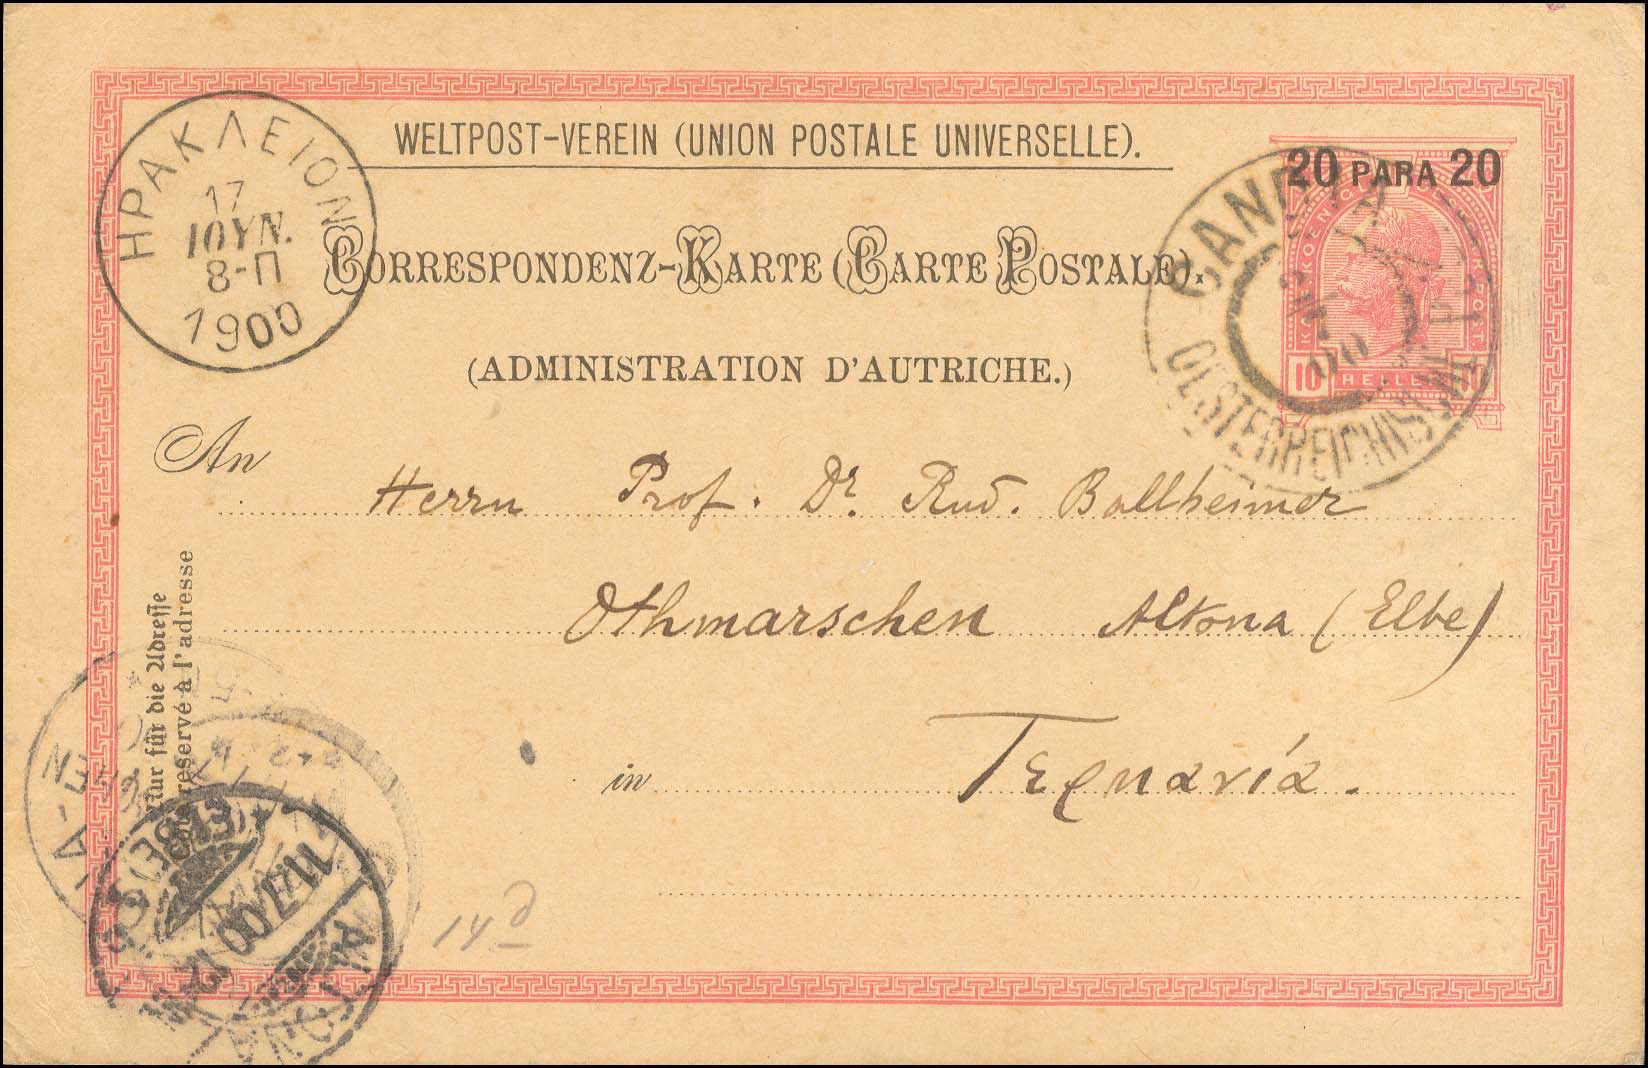 WELTPOST-VEREIN (UNION POSTALE UNIVERSELLE).
20 PARA 20
ΗΡΑΚΛΕΙΟΝ
17
ΙΟΥΝ.
8-Π
1900
CORRESPONDENZ-KARTE (CARTE POSTALE).
CANDIA
OESTERREICHISCHE
10 HELLER 10
(ADMINISTRATION D'AUTRICHE.)
An
Herrn Prof. Dr. Rud. Ballheimer
Othmarschen Altona (Elbe)
in Γερμανία.
für die Adresse
reservé à l'adresse
ALTONA
(ELBE)
11/7 00
14 d